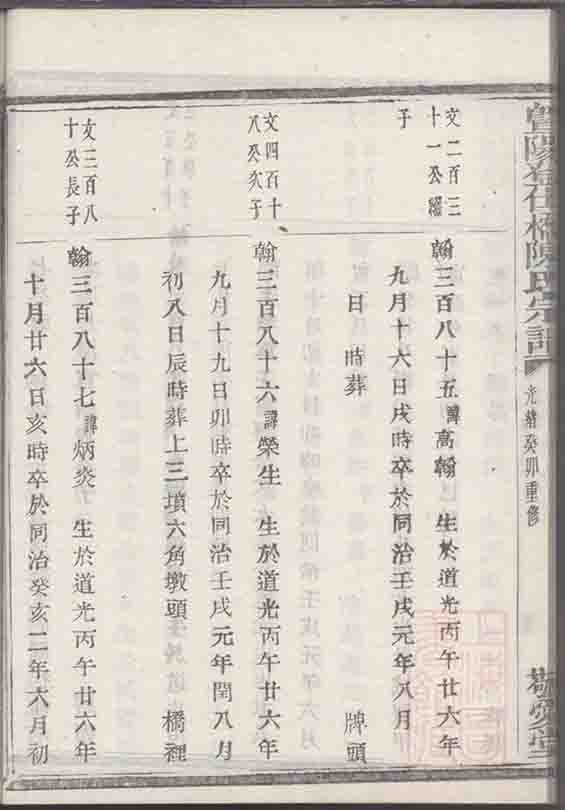 暨陽
橋陳氏宗譜
光緒癸卯重修
敬愛堂
文二百三
十一公繼
子
翰三百八十五諱高翰 生於道光丙午廿六年
九月十六日戌時卒於同治壬戌元年八月
日 時葬 牌頭
文四百十
八公次子
翰三百八十六諱榮生 生於道光丙午廿六年
九月十九日卯時卒於同治壬戌元年閏八月
初八日辰時葬上三墳六角墩頭 橋裡
文三百八
十公長子
翰三百八十七諱炳炎 生於道光丙午廿六年
十月廿六日亥時卒於同治癸亥二年六月初